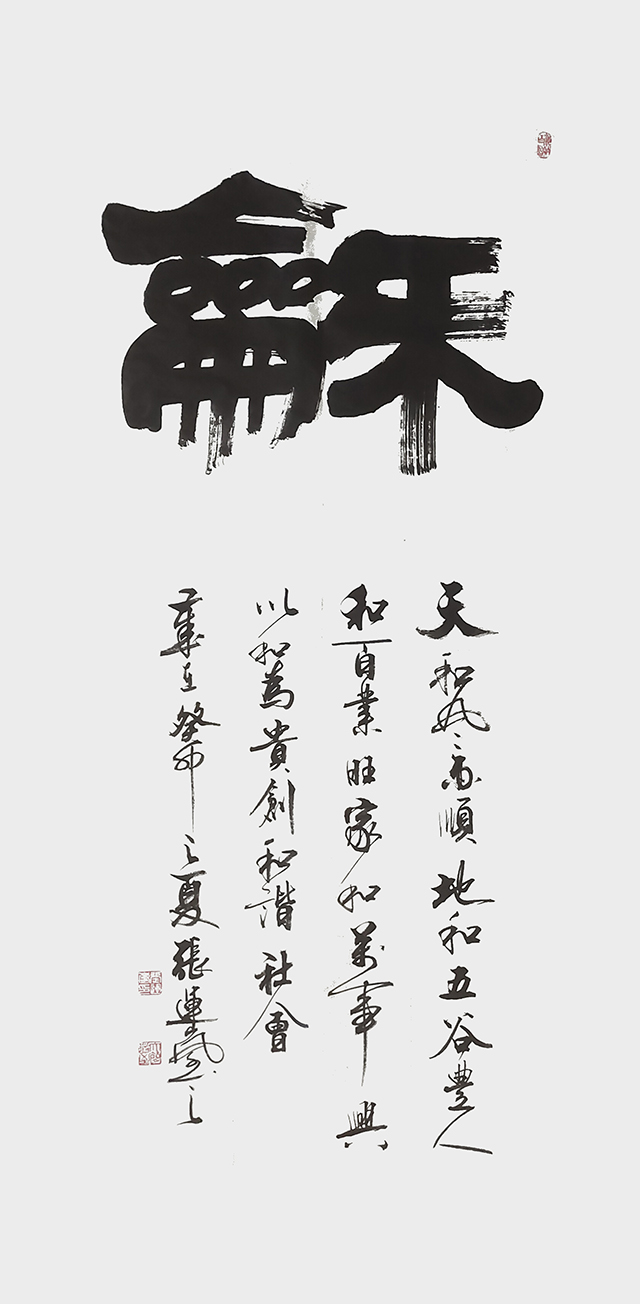 龢
天和風雨順地和五谷豐人
和百業旺家和萬事興
以和為貴創和諧社會
歲在癸卯之夏張運之